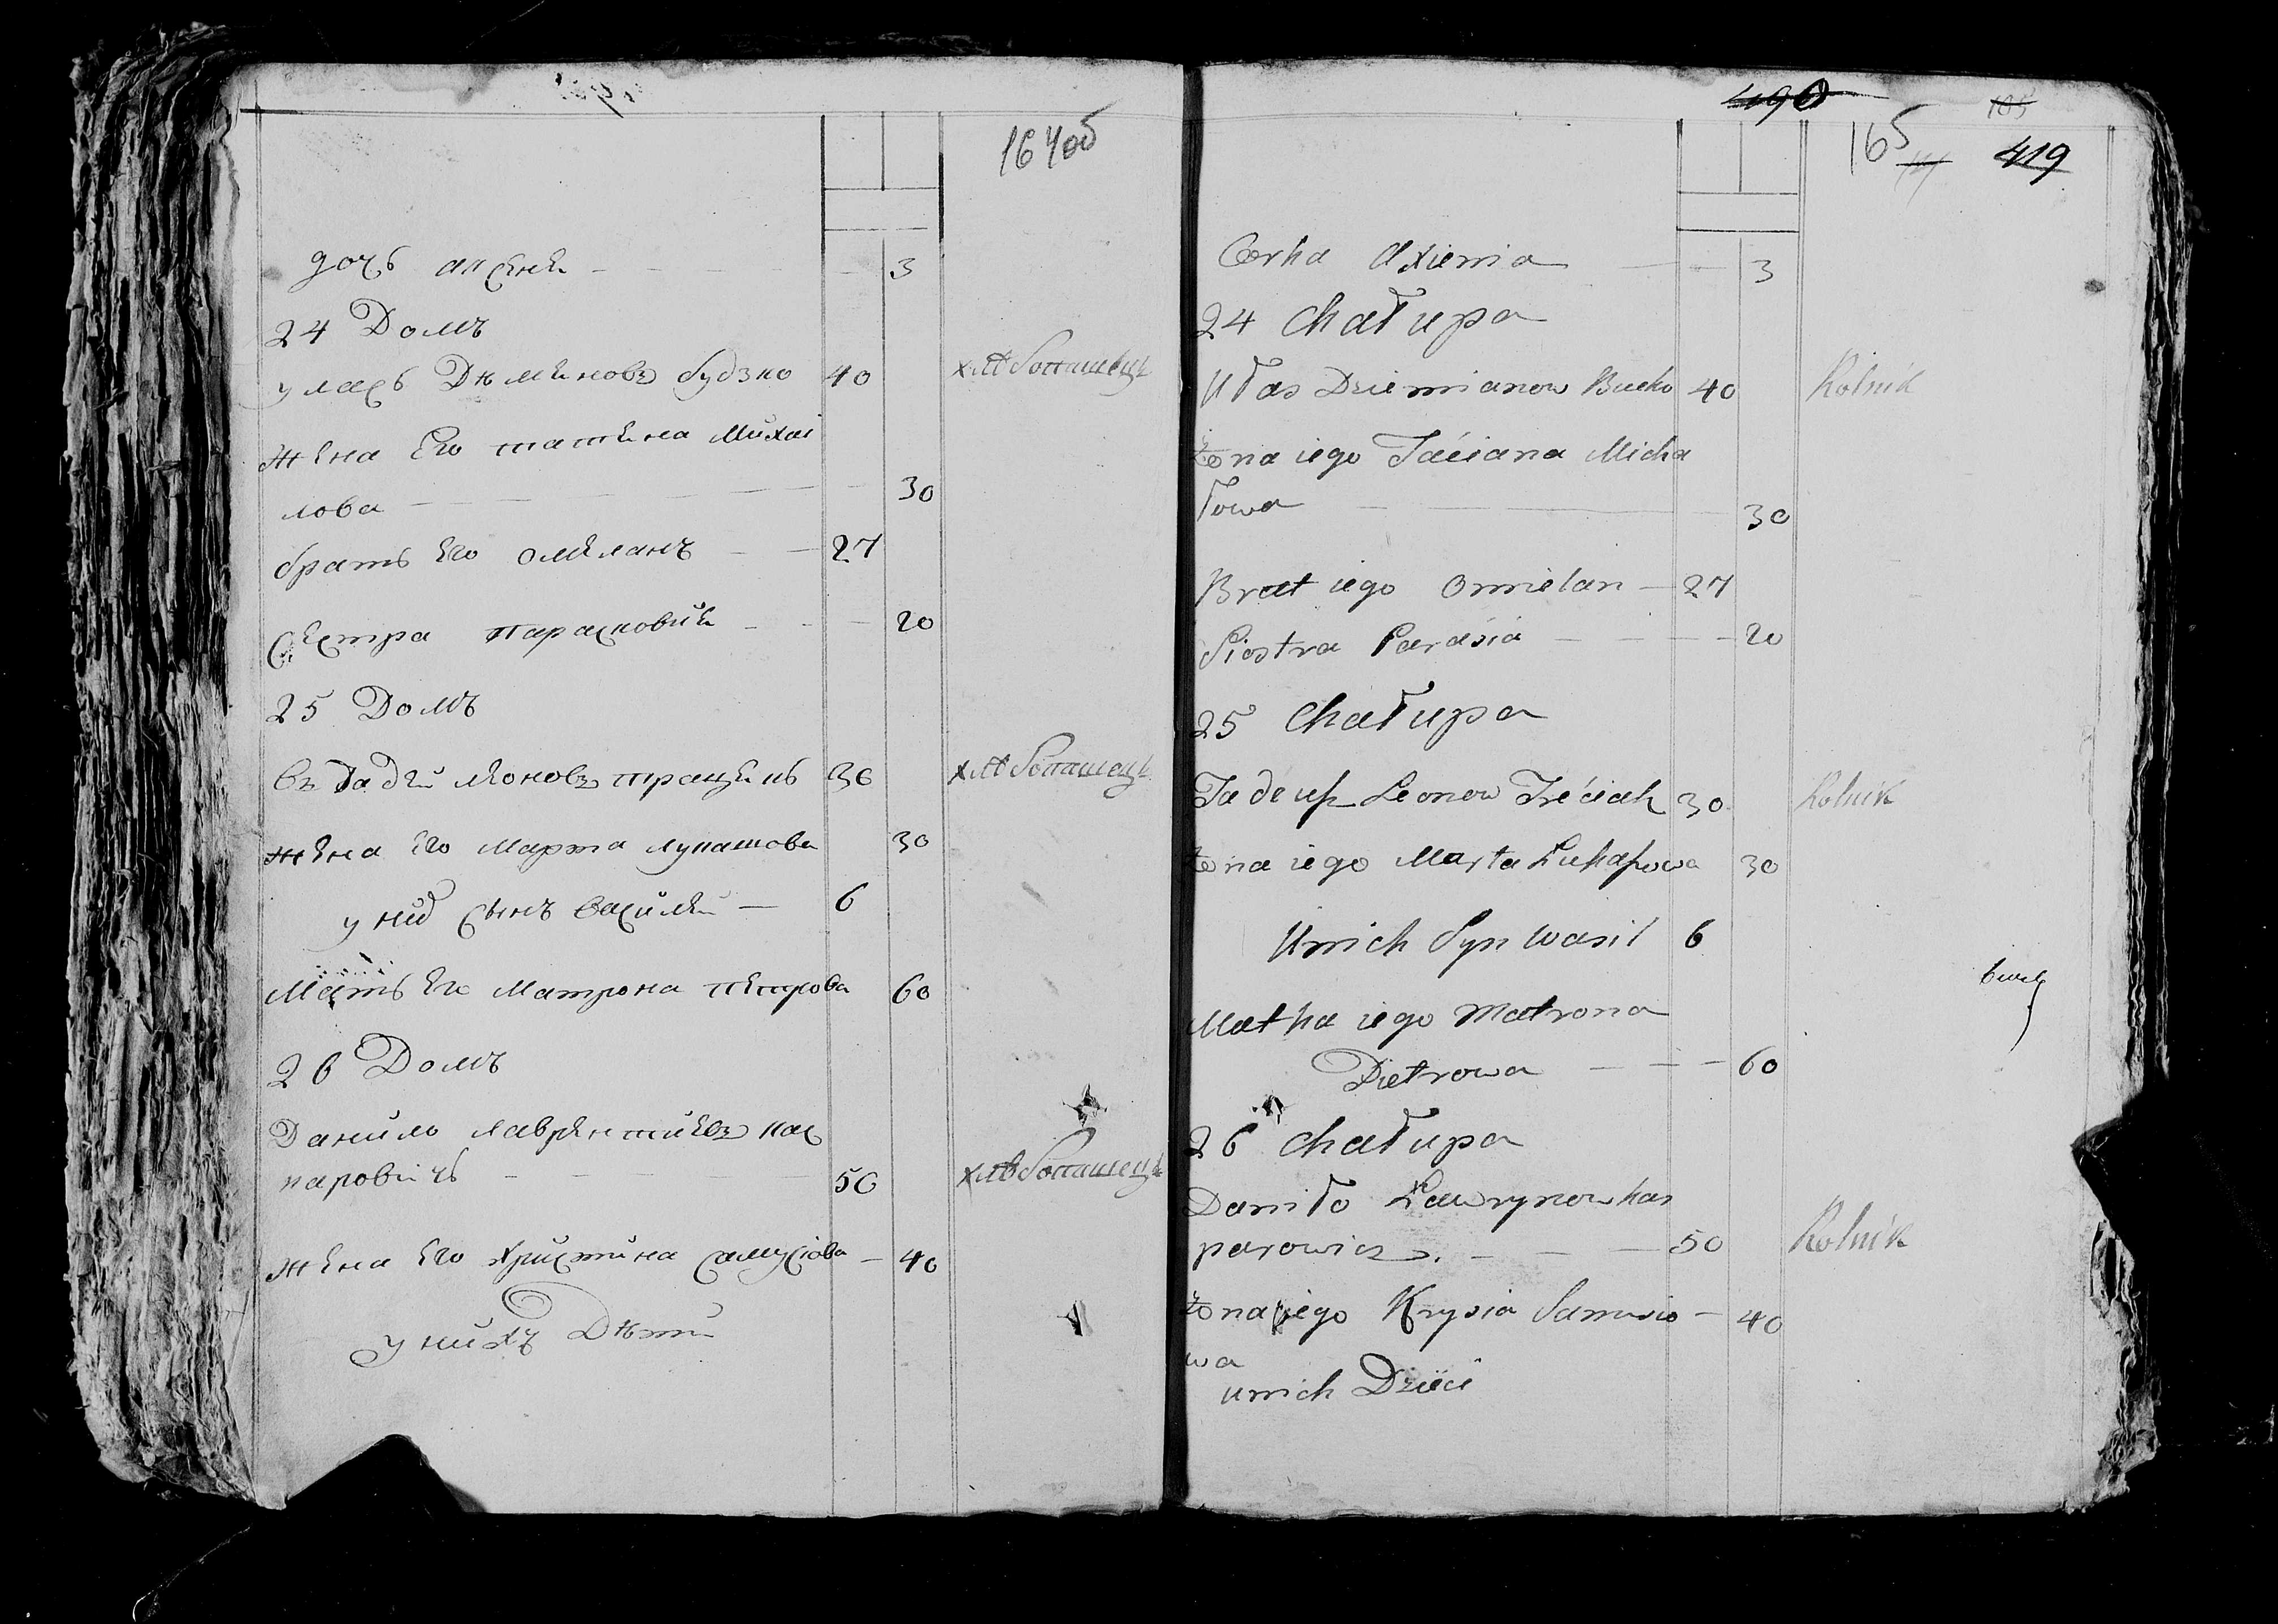 164об
дочъ апсеня 3
24 Домъ
уласъ Дѣмяновъ будзко 40 хлѣбопашецъ
жена Его татяна Михаи
лова 30
братъ Его омелянъ 27
Сестра Парасковия 20
25 Домъ
Тадей Леоновъ трацякъ 30 хлѣбопашецъ
жена Его Марта лукашова 30
у них сынъ василей 6
Мать Его Матрона петрова 60
26 Домъ
Данило лаврентиевъ кас
паровичъ 50 хлѣбопашецъ
жена Его Христина самусіова 40
у нихъ Дѣти
490
105
165
419
Corka Axienia 3
24 Chałupa
Ułas Dziemianow Bucko 40 Rolnik
żona iego Taciana Micha
łowa 30
Brat iego Omielan 27
Siostra Parasia 20
25 Chałupa
Tadeusz Leonow Treciak 30 Rolnik
żona iego Marta Łukaszowa 30
Unich Syn Wasil 6
Matka iego Matrona
Pietrowa 60
26 Chałupa
Daniło Ławrynow kas
parowicz 50 Rolnik
żona iego Krysia Samusio 40
wa
unich Dzieci